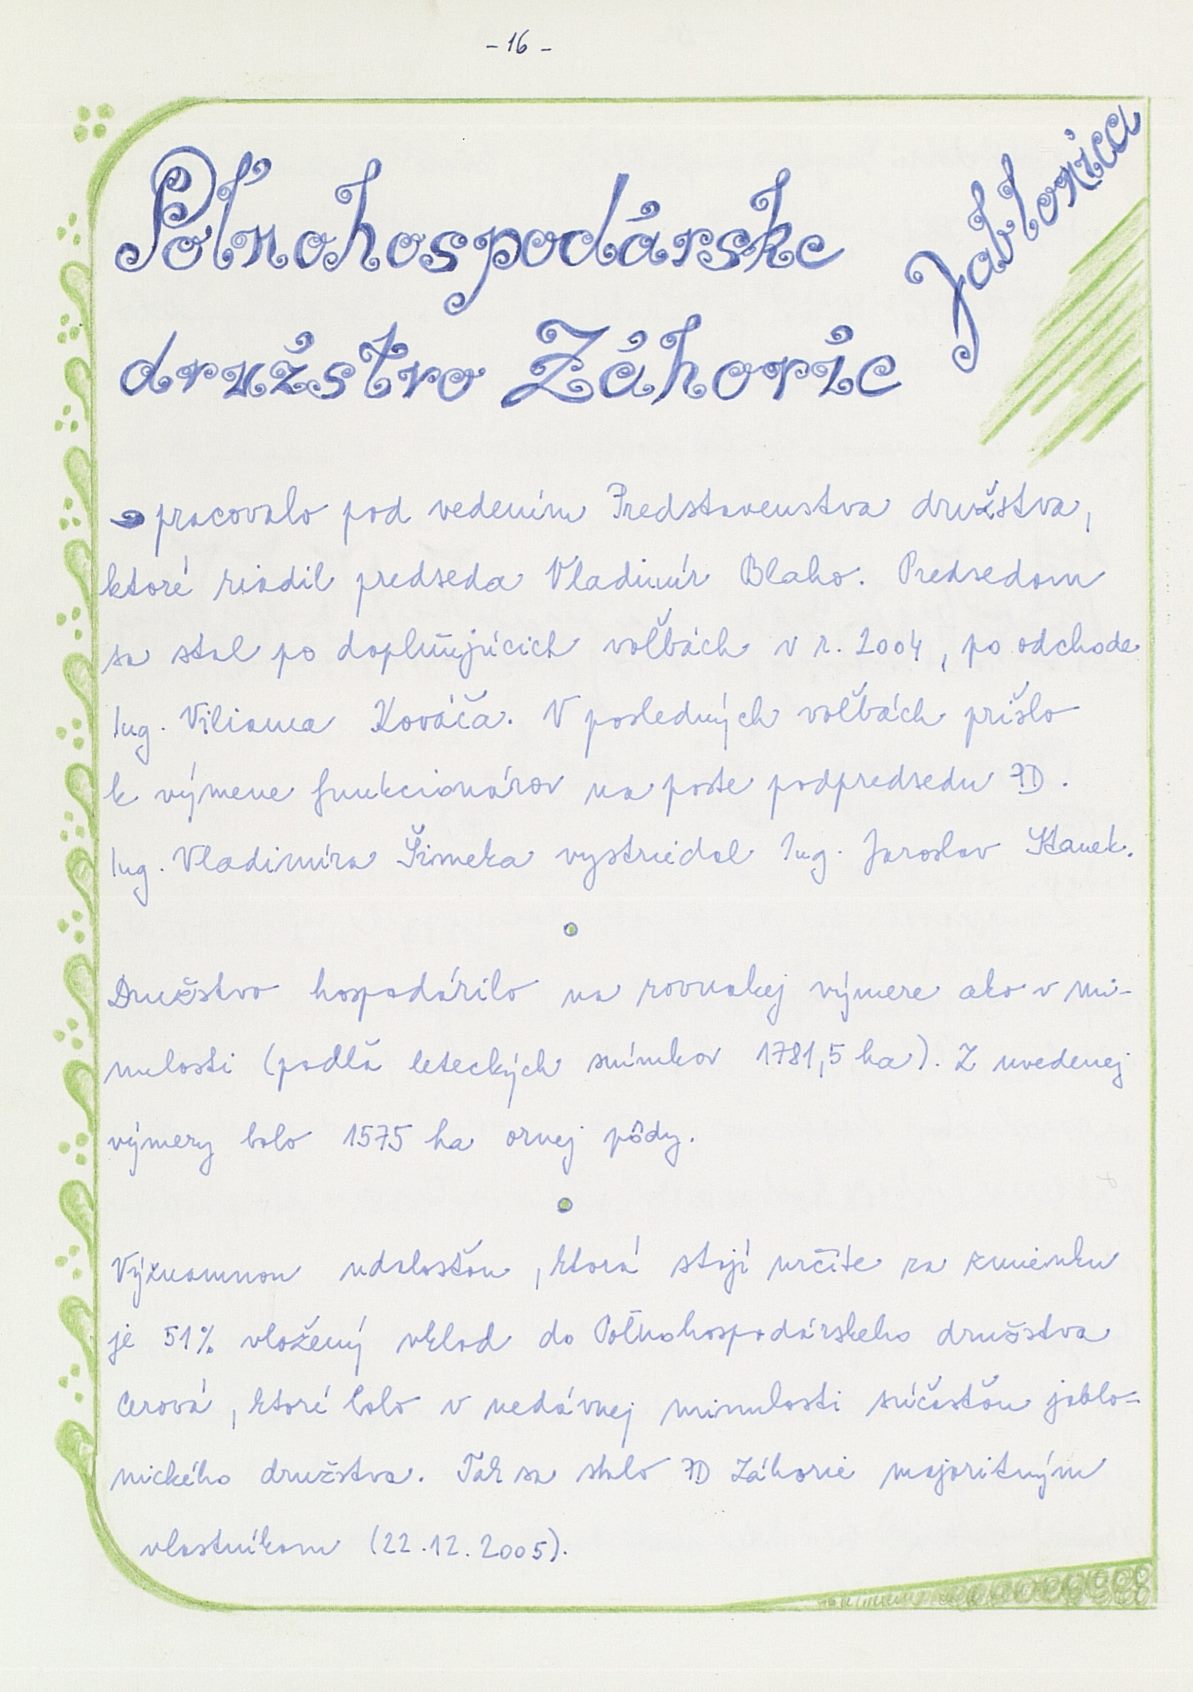 - 16 -
Poľnohospodárske
družstvo Záhorie
Jablonica
pracovalo pod vedením Predstavenstva družstva,
ktoré riadil predseda Vladimír Blaho. Predsedom
sa stal po doplňujúcich voľbách v r. 2004, po odchode
Ing. Viliama Kováča. V posledných voľbách prišlo
k výmene funkcionárov na poste podpredsedu PD.
Ing. Vladimíra Šimeka vystriedal Ing. Jaroslav Stanek.
Družstvo hospodárilo na rovnakej výmere ako v mi-
nulosti (podľa leteckých snímkov 1781,5 ha). Z uvedenej
výmery bolo 1575 ha ornej pôdy.
Významnou udalosťou, ktorá stojí určite za zmienku
je 51% vložený vklad do Poľnohospodárskeho družstva
Cerová, ktoré bolo v nedávnej minulosti súčasťou jablo=
nického družstva. Tak sa stalo PD Záhorie majoritným
vlastníkom (22.12.2005).